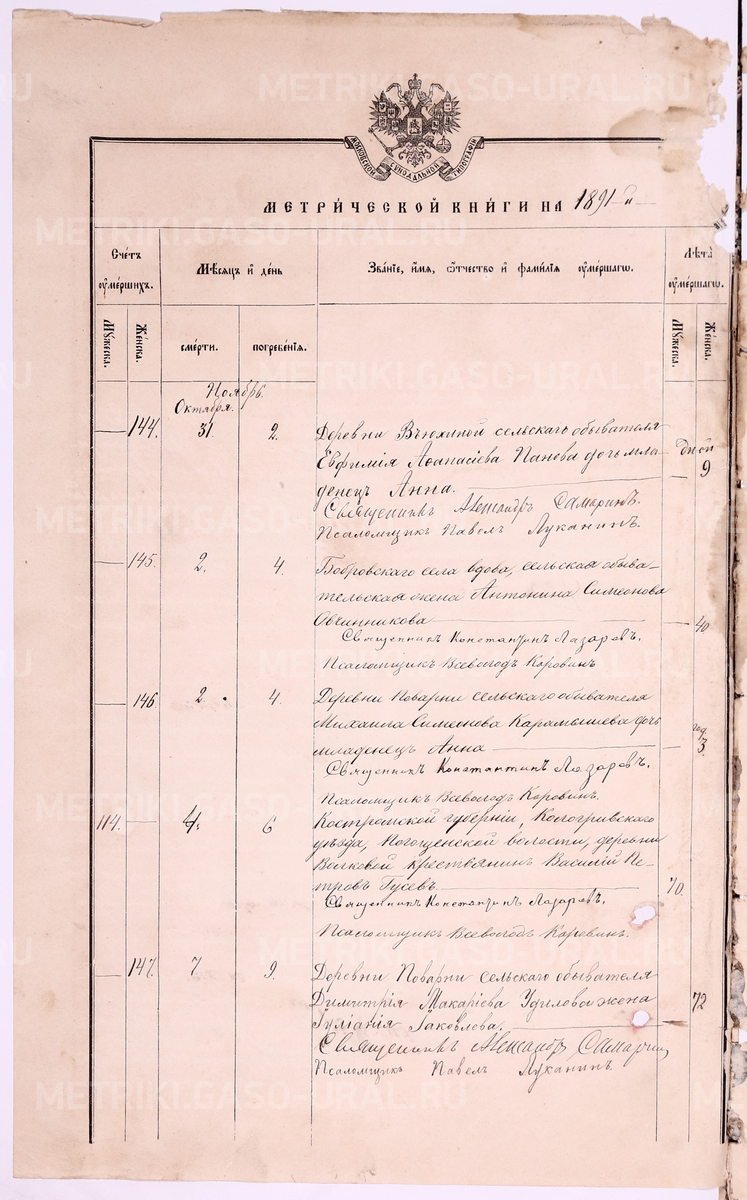 МОСКОВСКОЙ СѴНОДАЛЬНОЙ ТИПОГРАФІИ
МЕТРИ́ЧЕСКОЙ КНИ́ГИ НА 1891-й
Сче́тъ ᲂумершихъ.
Мѣсяцъ и день
Званіе, имя, ѻтчество и фамилія ᲂумершагѡ.
Лѣта ᲂумершагѡ.
Мꙋжеска.
Женска.
смерти.
погребенія.
Мꙋжеска.
Женска.
Ноябрь.
Октября.
144. 31. 2. Деревни Вьюхиной сельскаго обывателя
Евфимія Аѳанасіева Панова дочь мла-
дней 9
денецъ Анна.
Священникъ Александръ Самаринъ.
Псаломщикъ Павелъ Луканинъ.
145. 2. 4. Бобровскаго села вдова, сельская обыва-
тельская жена Антонина Симеонова
Овчинникова 40
Священникъ Константинъ Лазаревъ.
Псаломщикъ Всеволодъ Коровинъ
146 2 4. Деревни Поварни сельскаго обывателя
Михаила Симеонова Карамышева дочь
младенецъ Анна год. 3.
Священникъ Константинъ Лазаревъ.
Псаломщикъ Всеволодъ Коровинъ.
114. 4. 6 Костромской губерніи, Кологривскаго
уѣзда, волости, деревни
Волковой крестьянинъ Василій Пе-
тровъ Гусевъ 70.
Священникъ Константинъ Лазаревъ.
Псаломщикъ Всеволодъ Коровинъ.
147. 7 9. Деревни Поварни сельскаго обывателя
Димитрія Макаріева жена 72
Іуліанія Іаковлева.
Священникъ Александръ Самаринъ
Псаломщикъ Павелъ Луканинъ.
METRIKI.GASO-URAL.RU